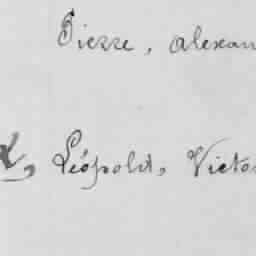 Pierre, Alexan
Léopold, Victo